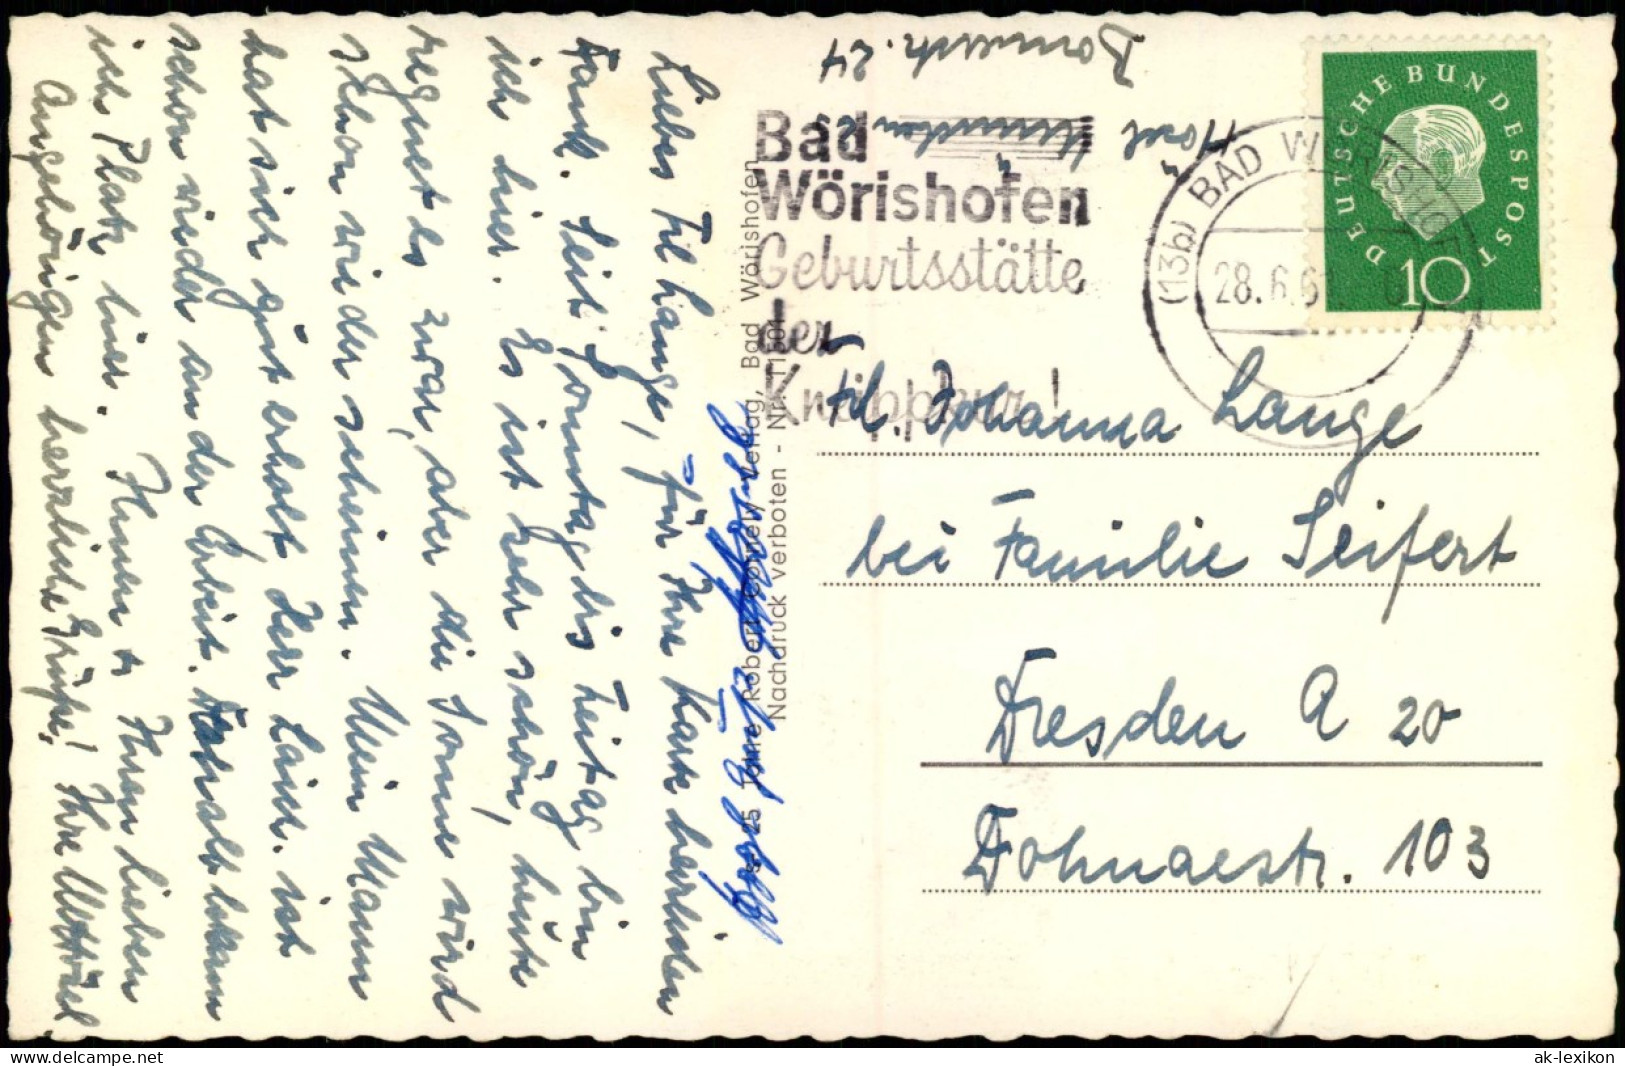 Liebes Frl. Lange, für Ihre Karte herzlichen
Dank. Seit Sonntag bis Freitag bin
ich hier. Es ist sehr schön, heute
regnet es zwar, aber die Sonne wird
schon wieder scheinen. Mein Mann
hat sich gut erholt, Herr Lainer ist
schon wieder an der Arbeit. Deshalb kam
ich Platz hier. Ihnen u. Ihren lieben
Angehörigen herzliche Grüße! Ihre
25 Robert Verlag, Bad Wörishofen
Nachdruck verboten - Nr. 11501
Hotel
Bad
Wörishofen
Geburtsstätte
der
Kneippkur!
(13b) BAD WÖRISHOFEN
28.6.61
DEUTSCHE BUNDESPOST
10
Frl. Johanna Lange
bei Familie Seifert
Dresden A 20
Dohnaerstr. 103
ak-lexikon
www.delcampe.net